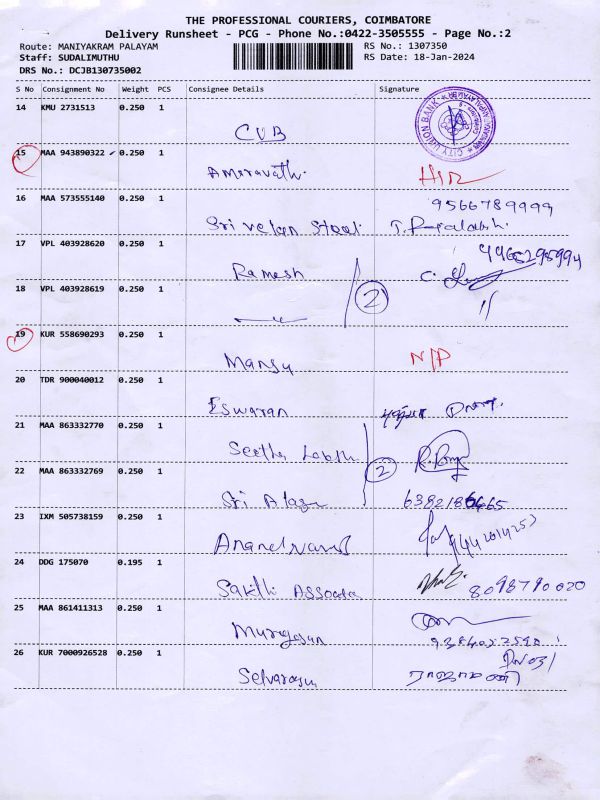 THE PROFESSIONAL COURIERS, COIMBATORE
Delivery Runsheet - PCG - Phone No.:0422-3505555 - Page No.:2
Route: MANIYAKRAM PALAYAM
RS No.: 1307350
Staff: SUDALIMUTHU
RS Date: 18-Jan-2024
DRS No.: DCJB130735002
S No Consignment No Weight PCS Consignee Details Signature
14 KMU 2731513 0.250 1
CUB
CITY UNION BANK
15 MAA 943890322 ✓ 0.250 1
Amaravathi
16 MAA 573555140 0.250 1
9566789999
Sri velan Steel
17 VPL 403928620 0.250 1
Ramesh
2
18 VPL 403928619 0.250 1
19 KUR 558690293 0.250 1
Mansu N/P
20 TDR 900040012 0.250 1
Eswaran
21 MAA 863332770 0.250 1
Seetha
2
22 MAA 863332769 0.250 1
Sri
23 IXM 505738159 0.250 1
24 DDG 175070 0.195 1
Sakthi 8098790020
25 MAA 861411313 0.250 1
Murugesan
26 KUR 7000926528 0.250 1
Selvarasu